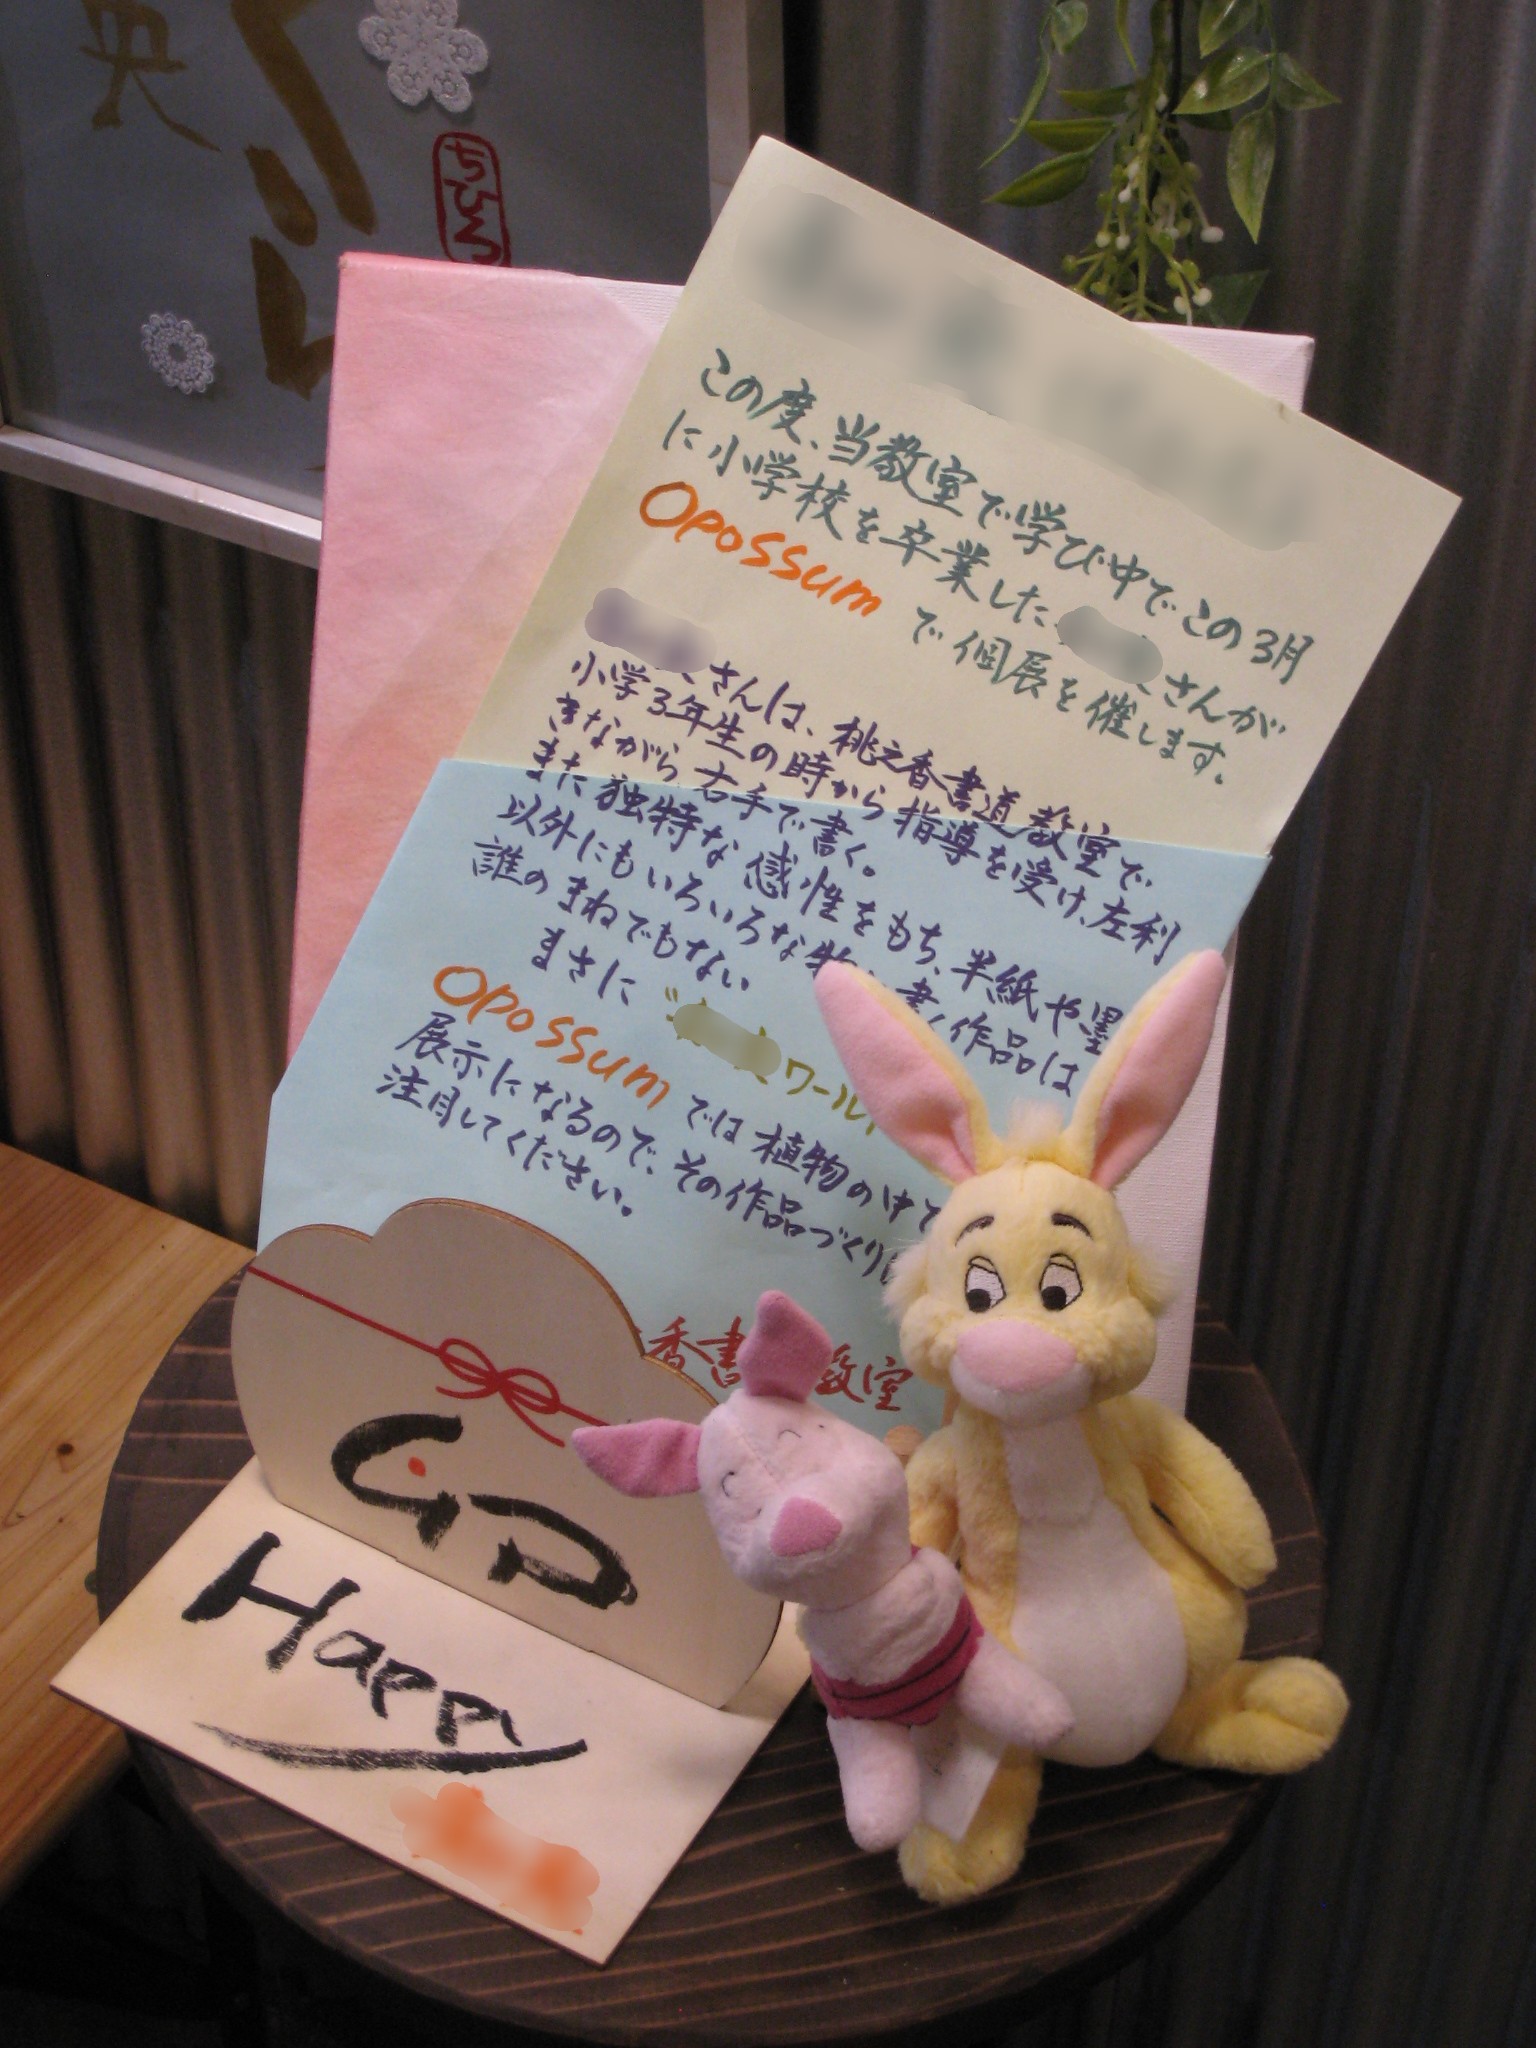 央
ちひろ
この度、当教室で学び中でこの3月
に小学校を卒業した さんが
Opossum で個展を催します。
さんは、桃之香書道教室で
小学3年生の時から指導を受け、左利
きながら右手で書く。
また独特な感性をもち、半紙や墨
以外にもいろいろな物に書く作品は
誰のまねでもない
まさに " ワール
Opossum では植物の中で
展示になるので、その作品づくり
注目してください。
香書 教室
GD
Happy